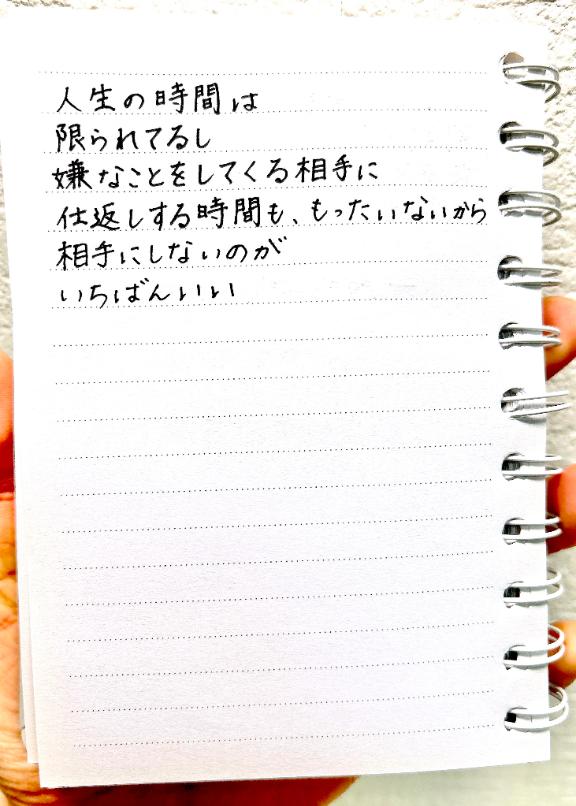 人生の時間は
限られてるし
嫌なことをしてくる相手に
仕返しする時間も、もったいないから
相手にしないのが
いちばんいい